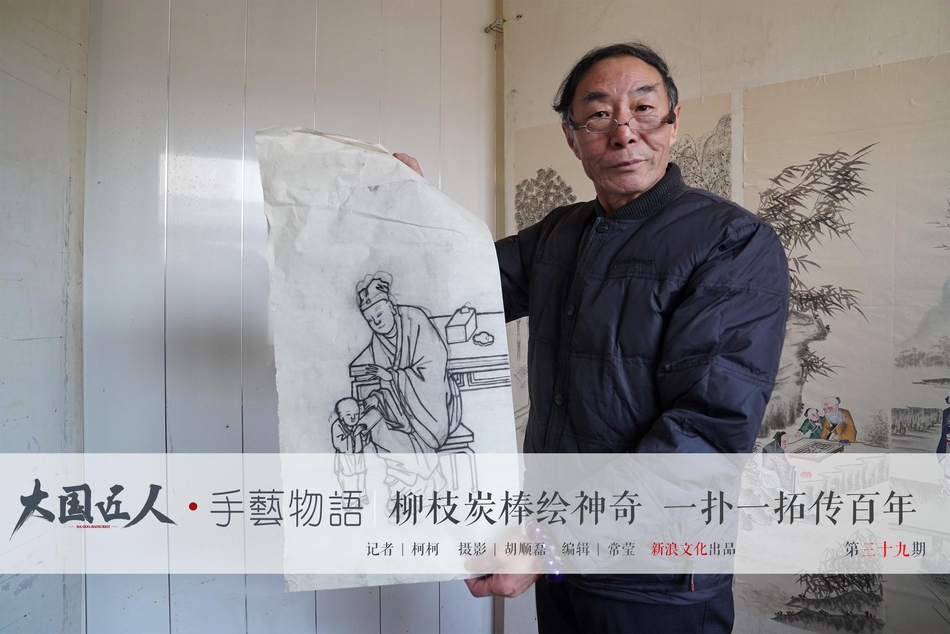 大国匠人·手藝物語 柳枝炭棒绘神奇 一扑一拓传百年
记者｜柯柯 摄影｜胡顺磊 编辑｜常莹 新浪文化出品 第三十九期